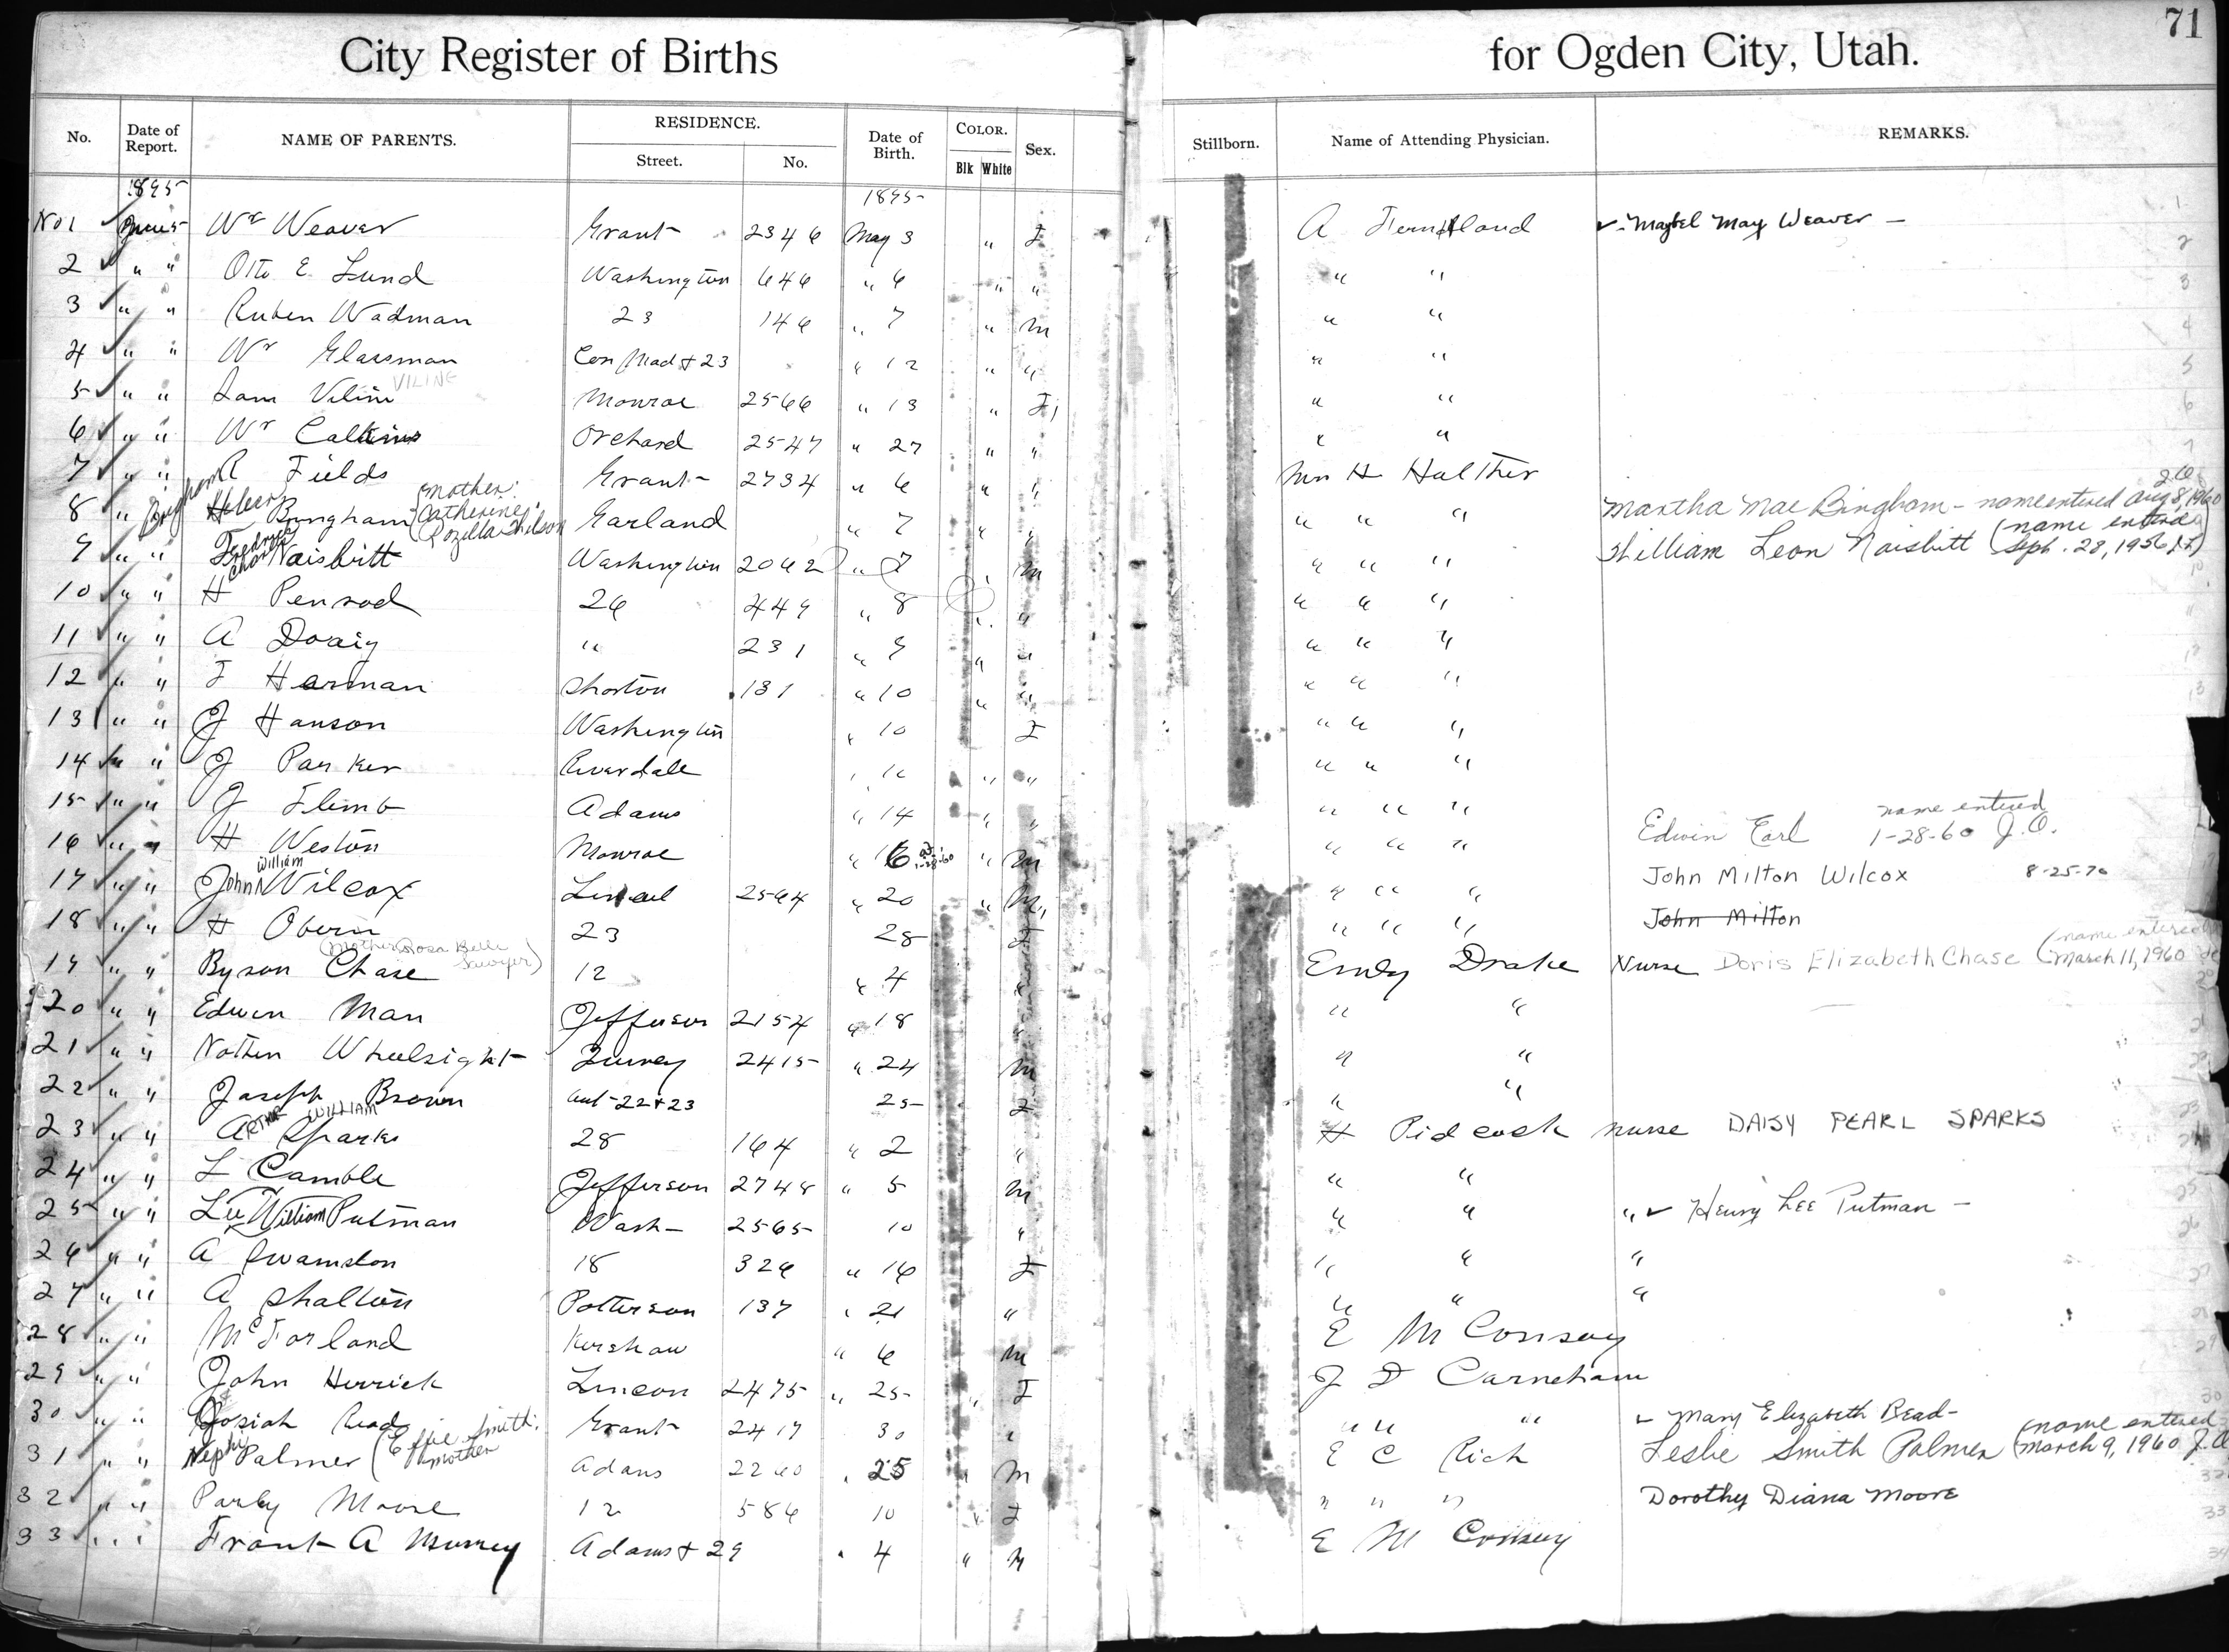 71
City Register of Births for Ogden City, Utah.
No. Date of Report. NAME OF PARENTS. RESIDENCE. Street. No. Date of Birth. COLOR. Blk White Sex. Stillborn. Name of Attending Physician. REMARKS.
1895 1895
No 1 June 5 Wm Weaver Grant 2346 May 3 " F A Fernlund ✓ Maybel May Weaver —
2 " " Otto E. Lund Washington 646 " 6 " " " "
3 " " Ruben Wadman 23 146 " 7 " M " "
4 " " Wm Glassman Cor Mad + 23 " 12 " " " "
5 " " Sam Viline VILINE Monroe 2566 " 13 " F " "
6 " " Wm Calkins Orchard 2547 " 27 " " " "
7 " " A Fields Grant 2734 " 6 " " Mrs H Halther
8 " Bingham Bingham (mother: Catherine Rozilla Wilson Garland " 7 " " " " " Martha Mae Bingham - name entered Aug 8, 1960
9 " " Naisbitt Washington 2062 " 7 " M " " " William Leon Naisbitt (name entered Sept. 28, 1956
10 " " H Penrod 26 449 " 8 " " " " "
11 " " A Doxig " 231 " 9 " " " " "
12 " " F Harman 131 " 10 " " " " "
13 " " J Hanson Washington " 10 F " " "
14 " " J Parker Riverdale " " " " " "
15 " " J Adams " 14 " " " " "
16 " " H Weston Monroe " 16 1-28-60 " M " " " Edwin Earl name entered 1-28-60 J.O.
17 " " John William Wilcox 2564 " 20 " M " " " John Milton Wilcox 8-25-70
18 " " H Obern 23 28 F " " " John Milton
19 " " Byson Chase (Mother Rosa Belle Sawyer) 12 " 4 " Emily Drake Nurse Doris Elizabeth Chase (name entered March 11, 1960
20 " " Edwin Man Jefferson 2154 " 18 " " "
21 " " Nothen Whelsight Quincy 2415 " 24 M " "
22 " " Joseph Brown 22 + 23 25 F " "
23 " " ARTHUR WILLIAM Sparks 28 164 " 2 " H Pidcock nurse DAISY PEARL SPARKS
24 " " L Camble Jefferson 2748 " 5 M " "
25 " " Lee William Putman Wash 2565 10 " " " " ✓ Henry Lee Putman —
26 " " A Swamston 18 326 " 16 F " " "
27 " " A Shalton Patterson 137 " 21 " " " "
28 " " McFarland Kershaw " 6 M E M Conroy
29 " " John Herrick Lincon 2475 " 25 " F J D Carneham
30 " " Josiah Read Grant 2417 30 " " " " ✓ Mary Elizabeth Read —
31 " " Nephi Palmer (Effie Smith: mother Adans 2260 " 25 " M E C Rich Leslie Smith Palmer (name entered March 9, 1960 J.O.
32 " " Parley Moore 12 586 10 " F " " " Dorothy Diana Moore
33 " " Frank A Murrey Adams + 29 " 4 " M E M Conroy